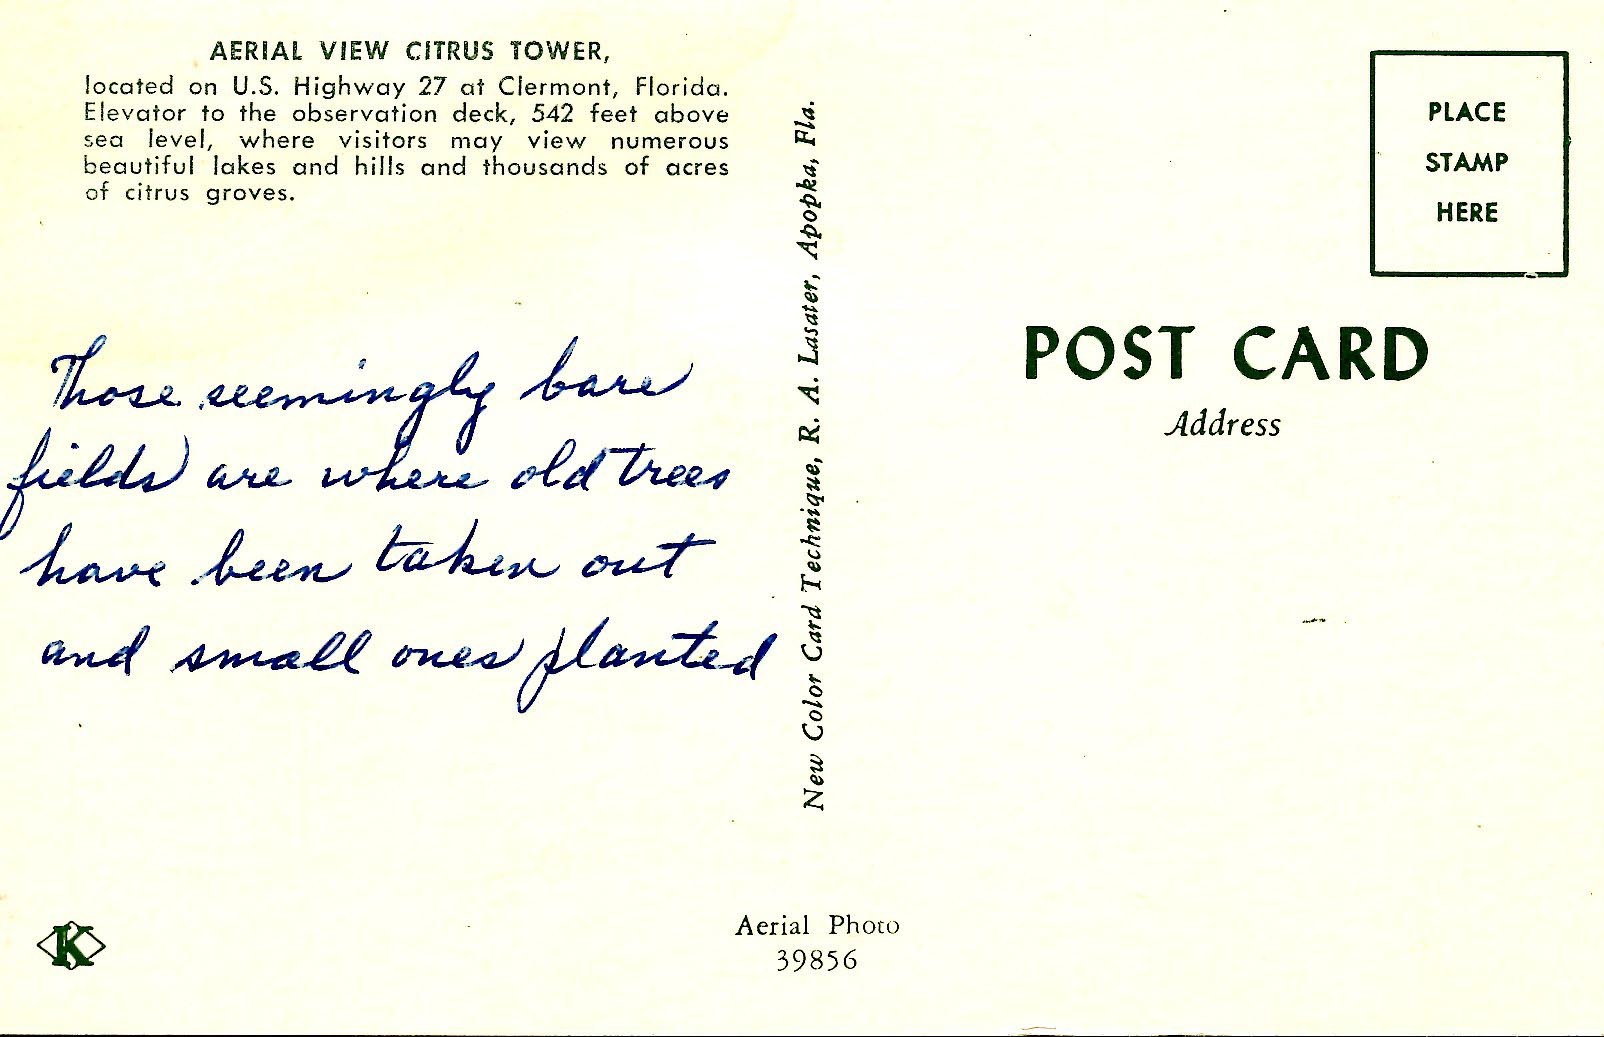 AERIAL VIEW CITRUS TOWER,
located on U.S. Highway 27 at Clermont, Florida.
Elevator to the observation deck, 542 feet above
sea level, where visitors may view numerous
beautiful lakes and hills and thousands of acres
of citrus groves.
Those seemingly bare
fields are where old trees
have been taken out
and small ones planted
K
New Color Card Technique, R. A. Lasater, Apopka, Fla.
Aerial Photo
39856
PLACE
STAMP
HERE
POST CARD
Address